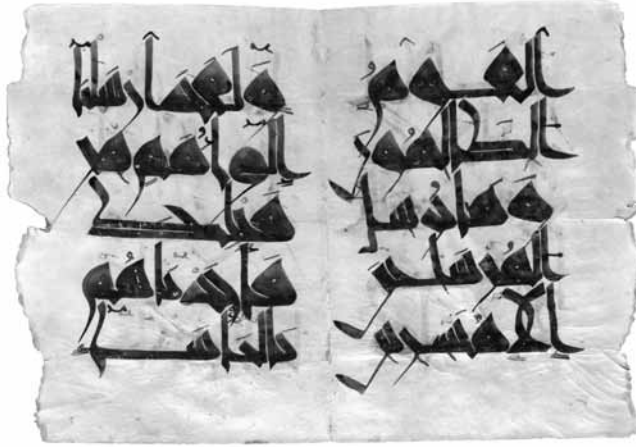 القوم
الظالمون
وما نرسل
المرسلين
إلا مبشرين
ولقد أرسلنا
إلى أمم من
قبلك
فأخذناهم
بالبأساء